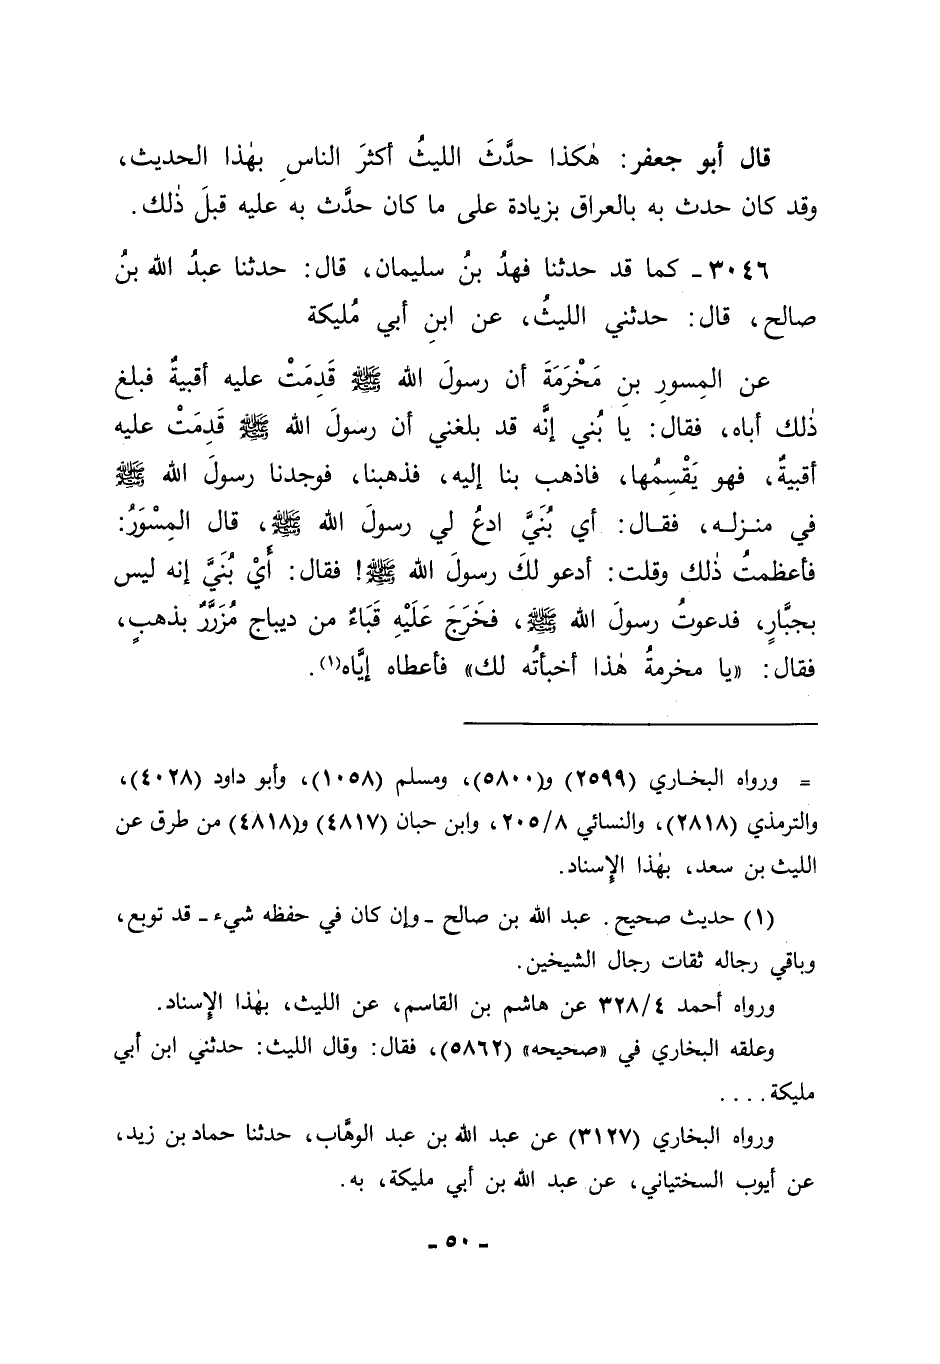 قال أبو جعفر: هٰكذا حدَّثَ الليثُ أكثرَ الناسِ بهٰذا الحديث،
وقد كان حدث به بالعراق بزيادة على ما كان حدَّث به عليه قبلَ ذٰلك.
٣٠٤٦ـ كما قد حدثنا فهدُ بنُ سليمان، قال: حدثنا عبدُ الله بنُ
صالح، قال: حدثني الليثُ، عن ابنِ أبي مُليكة
عن المِسورِ بنِ مَخْرَمَةَ أن رسولَ الله ﷺ قَدِمَتْ عليه أقبيةٌ فبلغ
ذٰلك أباه، فقال: يا بُني إنَّه قد بلغني أن رسولَ الله ﷺ قَدِمَتْ عليه
أقبيةٌ، فهو يَقْسِمُها، فاذهب بنا إليه، فذهبنا، فوجدنا رسولَ الله ﷺ
في منـزلـه، فقـال: أي بُنَيَّ ادعُ لي رسولَ الله ﷺ، قال المِسْوَرُ:
فأعظمتُ ذٰلك وقلت: أدعو لكَ رسولَ الله ﷺ! فقال: أَيْ بُنَيَّ إنه ليس
بجبَّارٍ، فدعوتُ رسولَ الله ﷺ، فخَرَجَ عَلَيْهِ قَبَاءٌ من ديباج مُزَرَّرٌ بذهبٍ،
فقال: «يا مخرمةُ هٰذا أخبأتُه لك» فأعطاه إيَّاه(١).
= ورواه البخـاري (٢٥٩٩) و(٥٨٠٠)، ومسلم (١٠٥٨)، وأبو داود (٤٠٢٨)،
والترمذي (٢٨١٨)، والنسائي ٢٠٥/٨، وابن حبان (٤٨١٧) و(٤٨١٨) من طرق عن
الليث بن سعد، بهٰذا الإِسناد.
(١) حديث صحيح. عبد الله بن صالح ـ وإن كان في حفظه شيء ـ قد توبع،
وباقي رجاله ثقات رجال الشيخين.
ورواه أحمد ٣٢٨/٤ عن هاشم بن القاسم، عن الليث، بهٰذا الإِسناد.
وعلقه البخاري في «صحيحه» (٥٨٦٢)، فقال: وقال الليث: حدثني ابن أبي
مليكة....
ورواه البخاري (٣١٢٧) عن عبد الله بن عبد الوهَّاب، حدثنا حماد بن زيد،
عن أيوب السختياني، عن عبد الله بن أبي مليكة، به.
ـ ٥٠ ـ